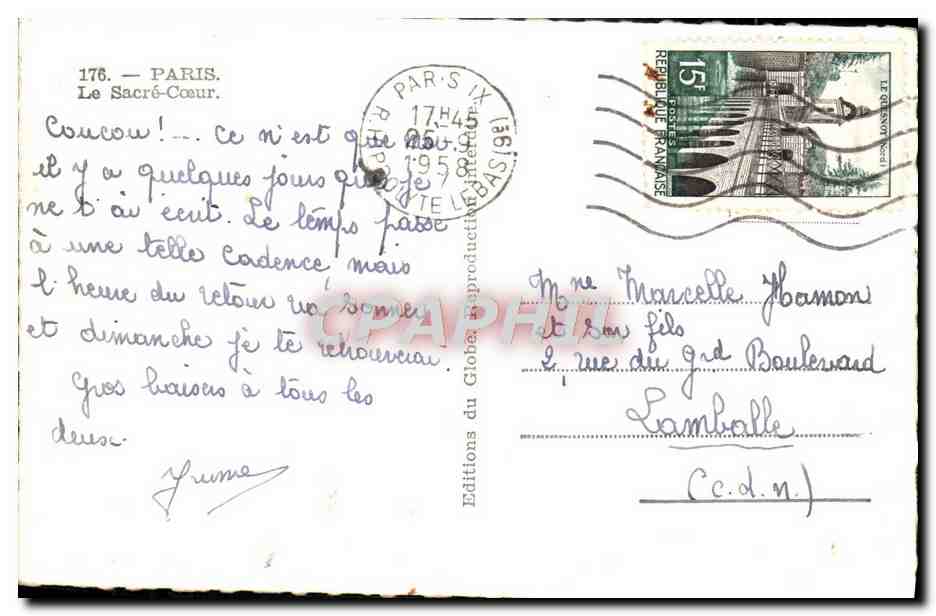 176. — PARIS.
Le Sacré-Cœur.
Coucou! .... Ce n'est que moi.
il y a quelques jours que je
ne t'ai écrit. Le temps passe
à une telle cadence, mais
l'heure du retour va sonner
et dimanche je te retrouverai.
Gros baisers à tous les
deux.
Editions du Globe. Reproduction interdite.
PARIS IX
17H45
1958
R. HIPPOLYTE LEBAS (9E)
15F
POSTES
REPUBLIQUE FRANÇAISE
LE QUESNOY (Nord)
CPAPHIL
Mme Marcelle Hamon
et son fils
2, rue du Grd Boulevard
Lamballe
(C.d.n.)